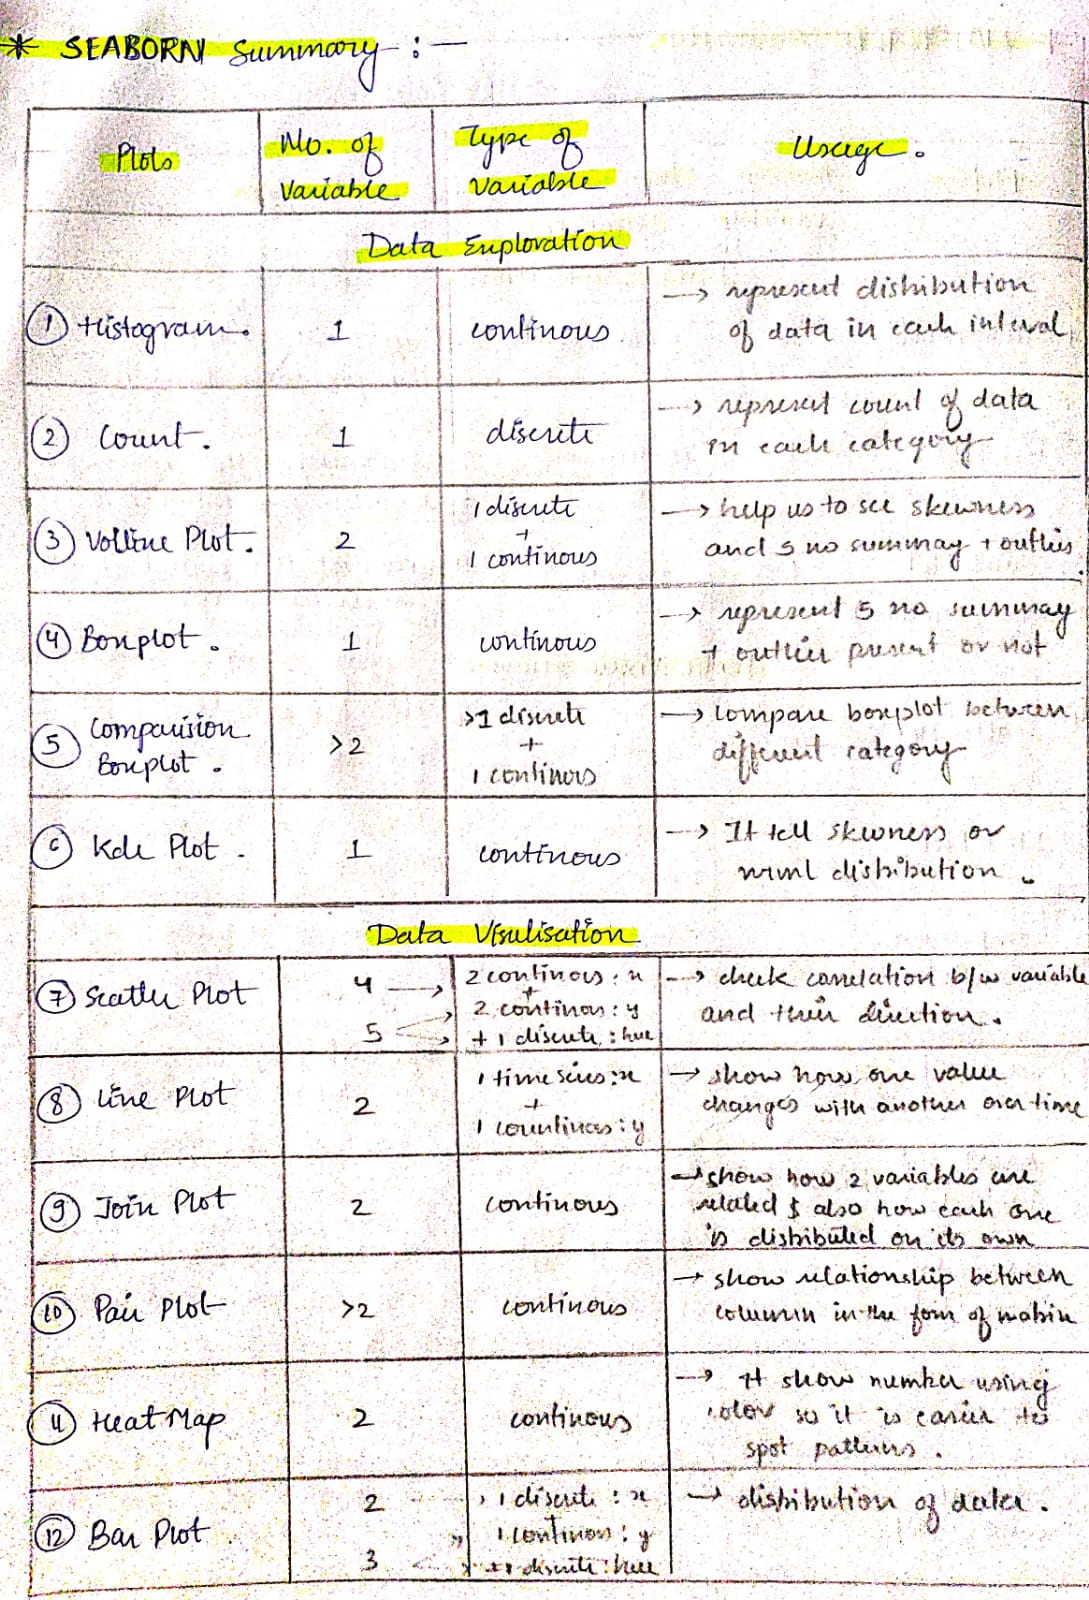 * SEABORN Summary :-
Plots
No. of
Variable
Type of
Variable
Usage.
Data Exploration
① Histogram.
1
continous
→ represent distribution
of data in each interval
② Count.
1
discrete
→ represent count of data
in each category
③ Volline Plot.
2
1 discrete
+
1 continous
→ help us to see skewness
and 5 no summay + outlies
④ Boxplot.
1
continous
→ represent 5 no summay
+ outlier present or not
⑤ Comparision
Boxplot.
>2
>1 discrete
+
1 continous
→ Compare boxplot between
different category
⑥ Kde Plot.
1
continous
→ It tell skewness or
norml distribution.
Data Visulisation
⑦ Scatter Plot
4 →
5
2 continous : x
+
2 continous : y
+ 1 discrete : hue
→ check correlation b/w variable
and their direction.
⑧ Line Plot
2
1 time series : x
+
1 countinous : y
→ show how one value
changes with another over time
⑨ Join Plot
2
continous
→ show how 2 variables are
related & also how each one
is distributed on its own
⑩ Pair Plot
>2
continous
→ show relationship between
column in the form of matrix
⑪ Heat Map
2
continous
→ It show number using
color so it is easier to
spot patterns.
⑫ Bar Plot
2
3
1 discrete : x
+
1 continous : y
+1 discrete : hue
→ distribution of data.